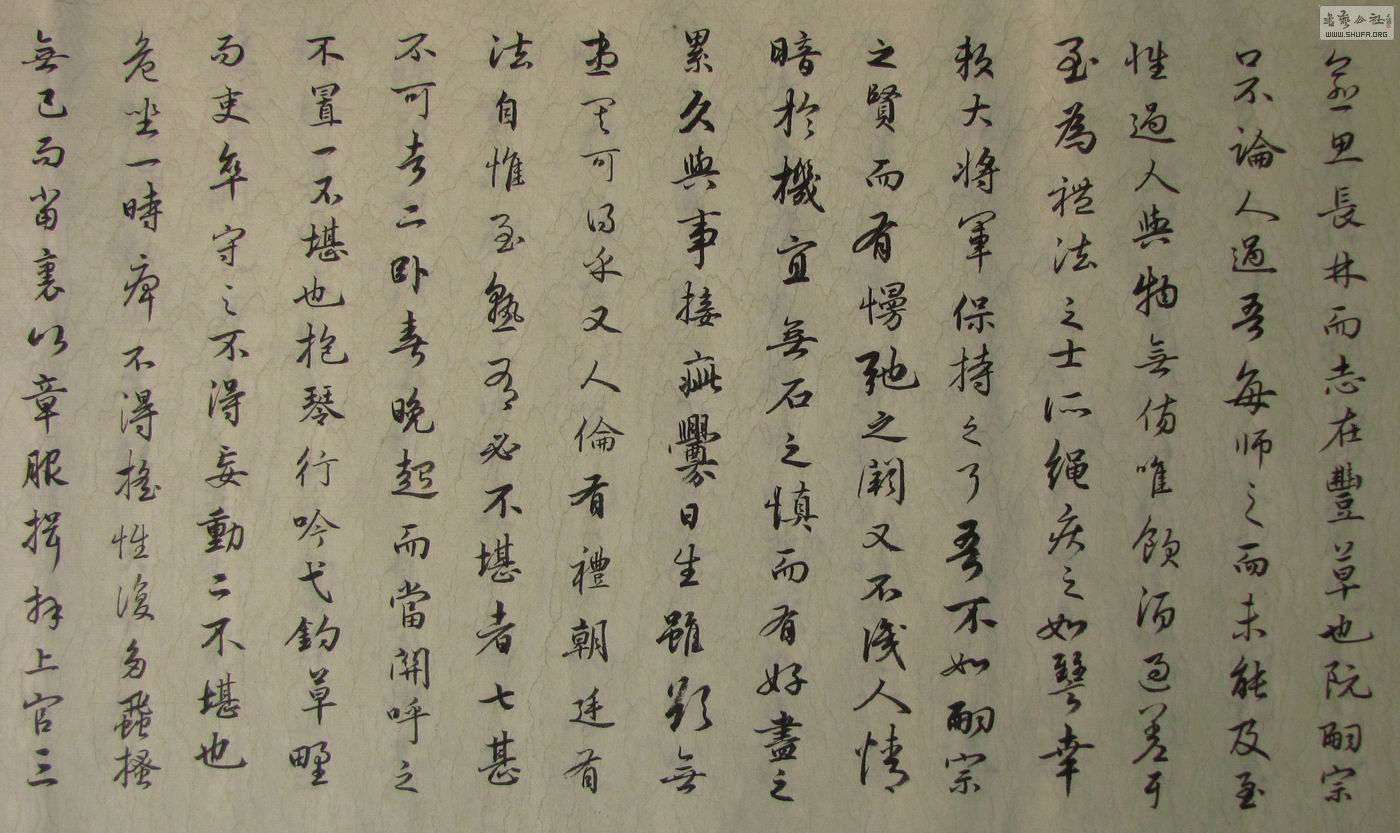 愈思長林而志在豐草也阮嗣宗
口不論人過吾每师之而未能及至
性過人與物無傷唯飲酒過差耳
至為禮法之士所繩疾之如讐幸
賴大將軍保持之耳吾不如嗣宗
之賢而有慢弛之闕又不識人情
暗於機宜無石之慎而有好盡之
累久與事接疵釁日生雖欲無
患其可得乎又人倫有禮朝廷有
法自惟至熟有必不堪者七甚
不可者二卧喜晚起而當關呼之
不置一不堪也抱琴行吟弋釣草野
而吏卒守之不得妄動二不堪也
危坐一時痺不得搖性復多蝨搔
無已而當裹以章服揖拜上官三
書藝公社
WWW.SHUFA.ORG